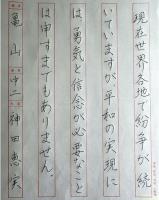 現在世界各地で紛争が続
いていますが、平和の実現に
は、勇気と信念が必要なこと
は申すまでもありません。
亀山 中二 神田恵実